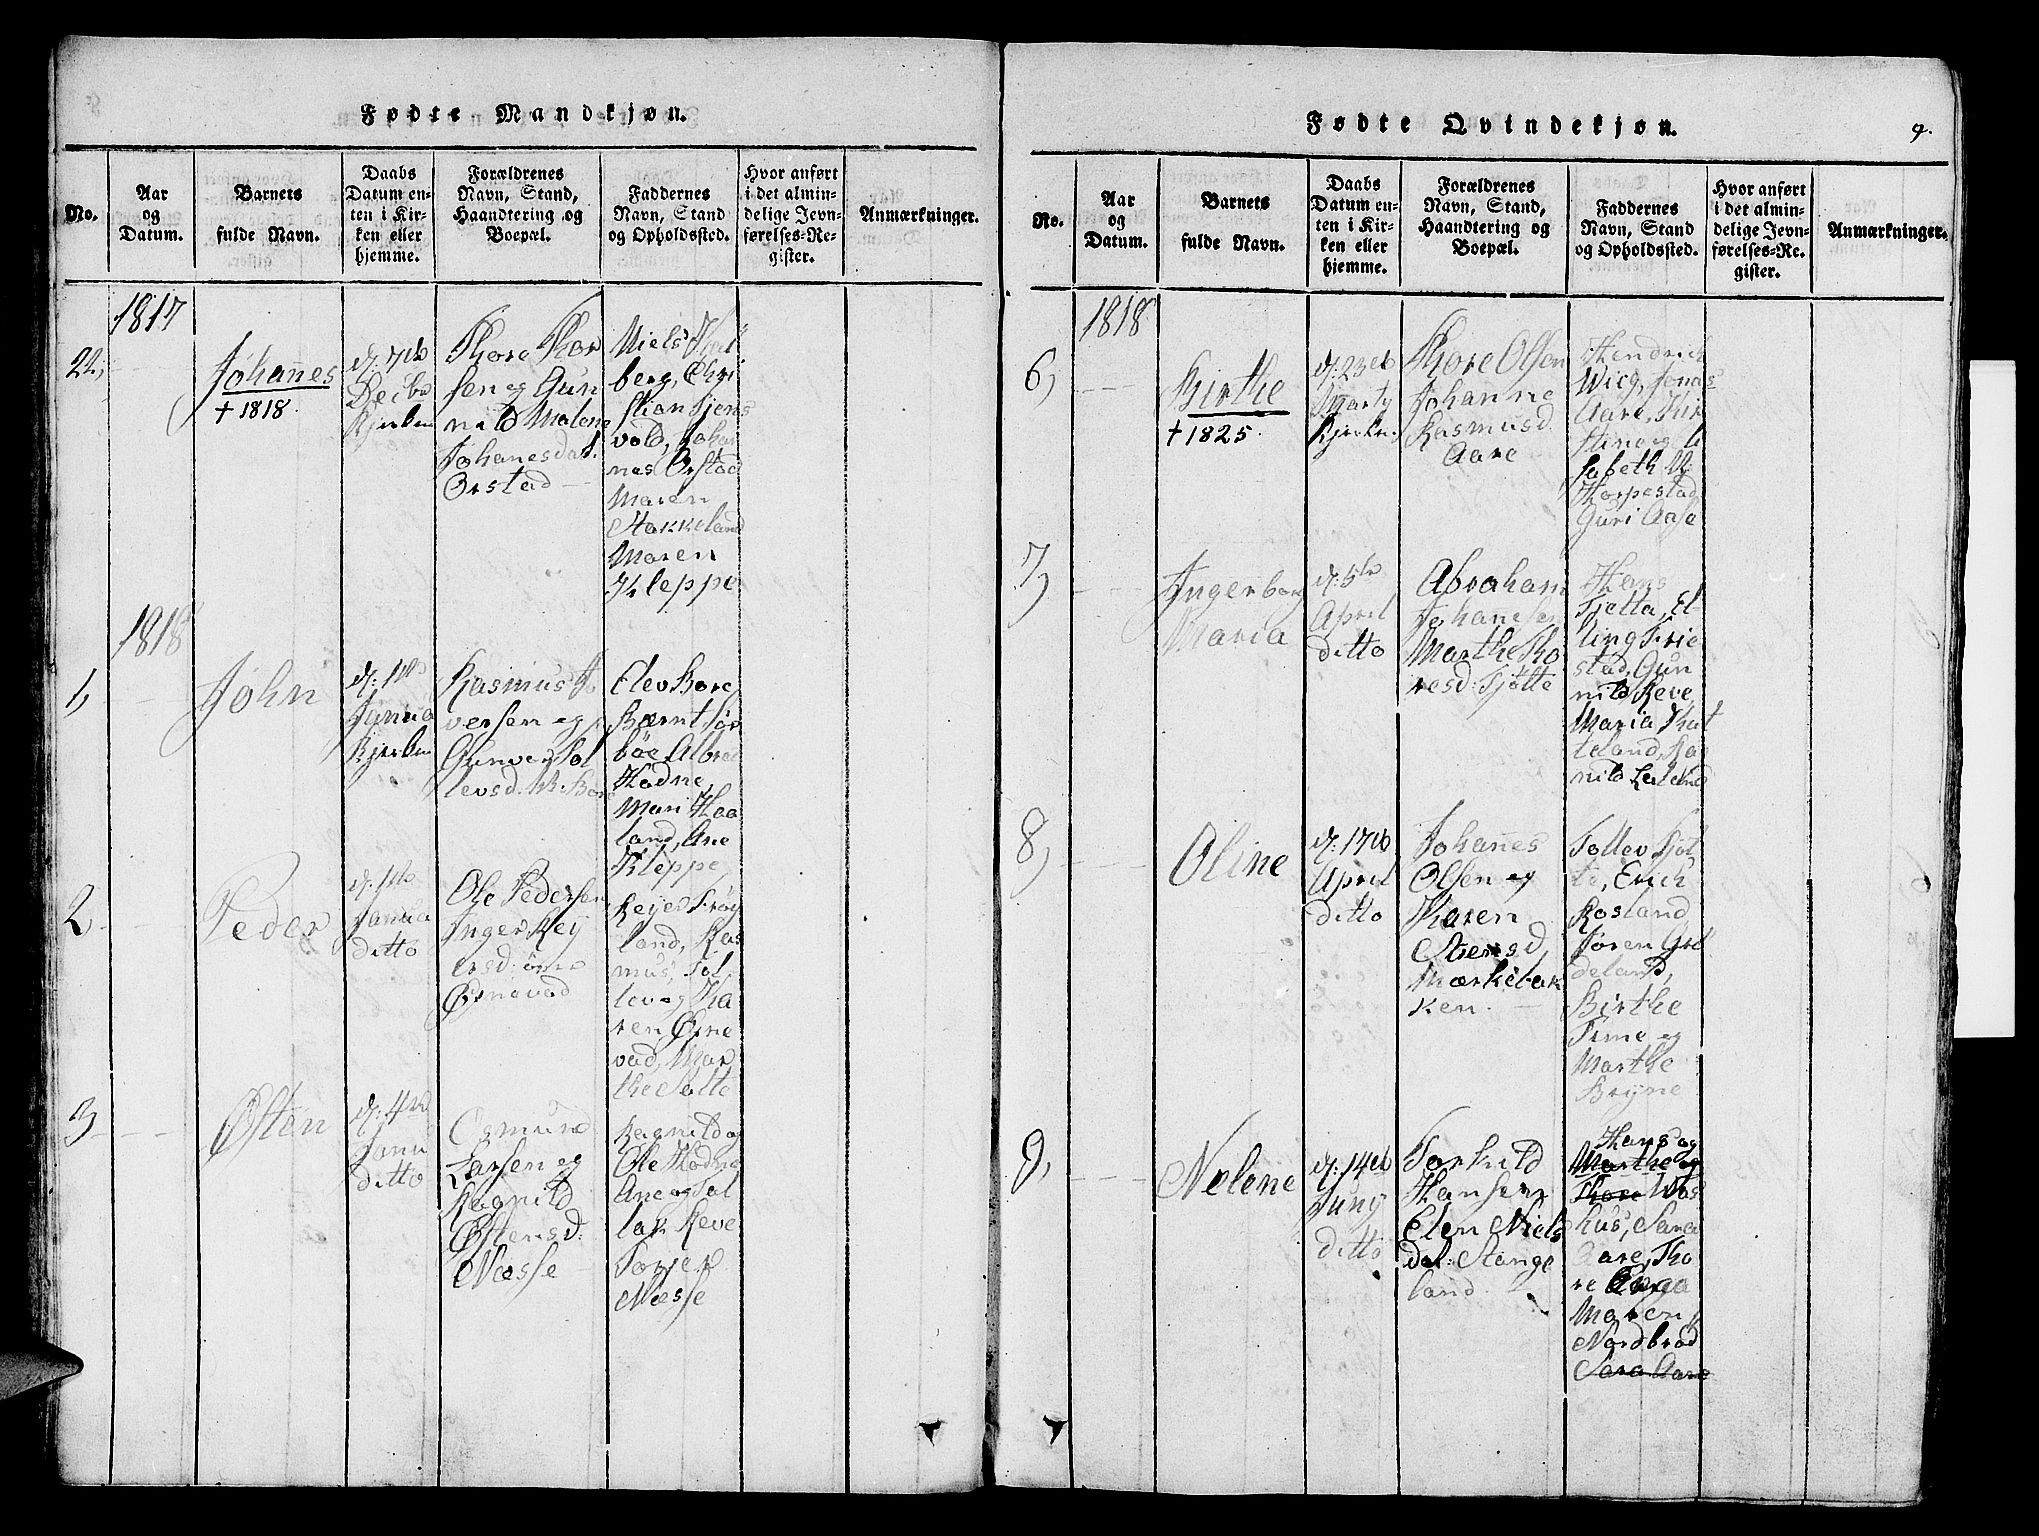 Fødte Mandkjøn.
No.
Aar
og
Datum.
Barnets
fulde Navn.
Daabs
Datum en-
ten i Kir-
ken eller
hjemme.
Forældrenes
Navn, Stand,
Haandtering og
Boepæl.
Faddernes
Navn, Stand
og Opholdssted.
Hvor anført
i det almin-
delige Jevn-
førelses-Re-
gister.
Anmærkninger.
1817
22,
Johannes
+ 1818.
d: 7de
Decbr
Kjerken
Thore Thor
sen og Gun
nild Malene
Johanesdat.
Orstad
Niels
berg, Chri
stian Tjens
vold, Johan
nes Orstad
Maren
Stokkeland
Maren
Kleppe
1818
1,
John
d: 1ste
Janua
Kjerken
Rasmus I
versen og
Gunver Tol
levsd.
Elev Bore
Bærnt Sør
böe
Hodne,
Mari Haa
land, Ane
Kleppe,
2
Peder
d: 1ste
Janua
ditto
Ole Pedersen
Inger Reij
ersd:
Ørnevad
Reijer Frøy
land, Ras
mus, Tol
lev og Ka
ren, Ørne
vad, Mar
the Salte
3,
Østen
d: 4de
Janu
ditto
Ogmund
Larsen og
Ragnild
Østensd:
Næsse
Ragnild og
Ole Hodne
Ane og Tol
lak Reve
Torjer
Næsse
Fødte Qvindekjøn.
9.
No.
Aar
og
Datum.
Barnets
fulde Navn.
Daabs
Datum en-
ten i Kir-
ken eller
hjemme.
Forældrenes
Navn, Stand,
Haandtering og
Boepæl.
Faddernes
Navn, Stand
og Opholdssted.
Hvor anført
i det almin-
delige Jevn-
førelses-Re-
gister.
Anmærkninger.
1818
6,
Birthe
+ 1825.
d: 23de
Marty
Kjerke.
Thore Olsen
Johanne
Rasmusd.
Aare
Hendrich
Wiig, Jonas
Aare, Kir
sten og E
lisabeth
Thorpestad
Guri Aase
7,
Ingerborg
Maria
d: 5te
April
ditto
Abraham
Johannesen
Marthe Tho
resd: Tjøtte
Hans
Tjøtta, El
ling Frie
stad, Gun
nild Reve
Maria Kat
teland,
nild Laland
8,
Oline
d: 17de
April
ditto
Johannes
Olsen og
Karen
Steensd,
Mærkebak
ken.
Tollev Tjøt
te, Erich
Rosland
Søren Gru
deland,
Birthe
Time og
Marthe
Bryne
9,
Nelene
d: 14de
Juny
ditto
Torkild
Hansen
Elen Niels
dat: Stange
land.
Hans og
Marthe og
Thore Vas
hus, Sara
Aare, Tho
re
Maren
Nordbraad
Sara Aare